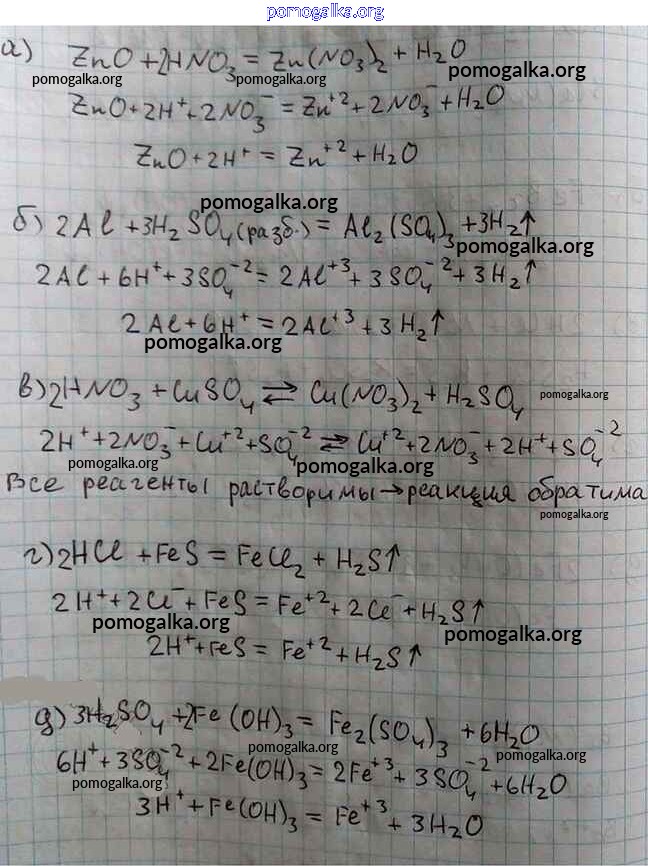 pomogalka.org
а) ZnO + 2HNO₃ = Zn(NO₃)₂ + H₂O
pomogalka.org pomogalka.org pomogalka.org
ZnO + 2H⁺ + 2NO₃⁻ = Zn⁺² + 2NO₃⁻ + H₂O
ZnO + 2H⁺ = Zn⁺² + H₂O
pomogalka.org
б) 2Al + 3H₂SO₄ (разб.) = Al₂(SO₄)₃ + 3H₂↑
pomogalka.org
2Al + 6H⁺ + 3SO₄⁻² = 2Al⁺³ + 3SO₄⁻² + 3H₂↑
2Al + 6H⁺ = 2Al⁺³ + 3H₂↑
pomogalka.org
в) 2HNO₃ + CuSO₄ ⇄ Cu(NO₃)₂ + H₂SO₄
pomogalka.org
2H⁺ + 2NO₃⁻ + Cu⁺² + SO₄⁻² ⇄ Cu⁺² + 2NO₃⁻ + 2H⁺ + SO₄⁻²
pomogalka.org pomogalka.org
Все реагенты растворимы → реакция обратима
pomogalka.org
г) 2HCl + FeS = FeCl₂ + H₂S↑
2H⁺ + 2Cl⁻ + FeS = Fe⁺² + 2Cl⁻ + H₂S↑
pomogalka.org pomogalka.org
2H⁺ + FeS = Fe⁺² + H₂S↑
д) 3H₂SO₄ + 2Fe(OH)₃ = Fe₂(SO₄)₃ + 6H₂O
pomogalka.org pomogalka.org
6H⁺ + 3SO₄⁻² + 2Fe(OH)₃ = 2Fe⁺³ + 3SO₄⁻² + 6H₂O
pomogalka.org
3H⁺ + Fe(OH)₃ = Fe⁺³ + 3H₂O